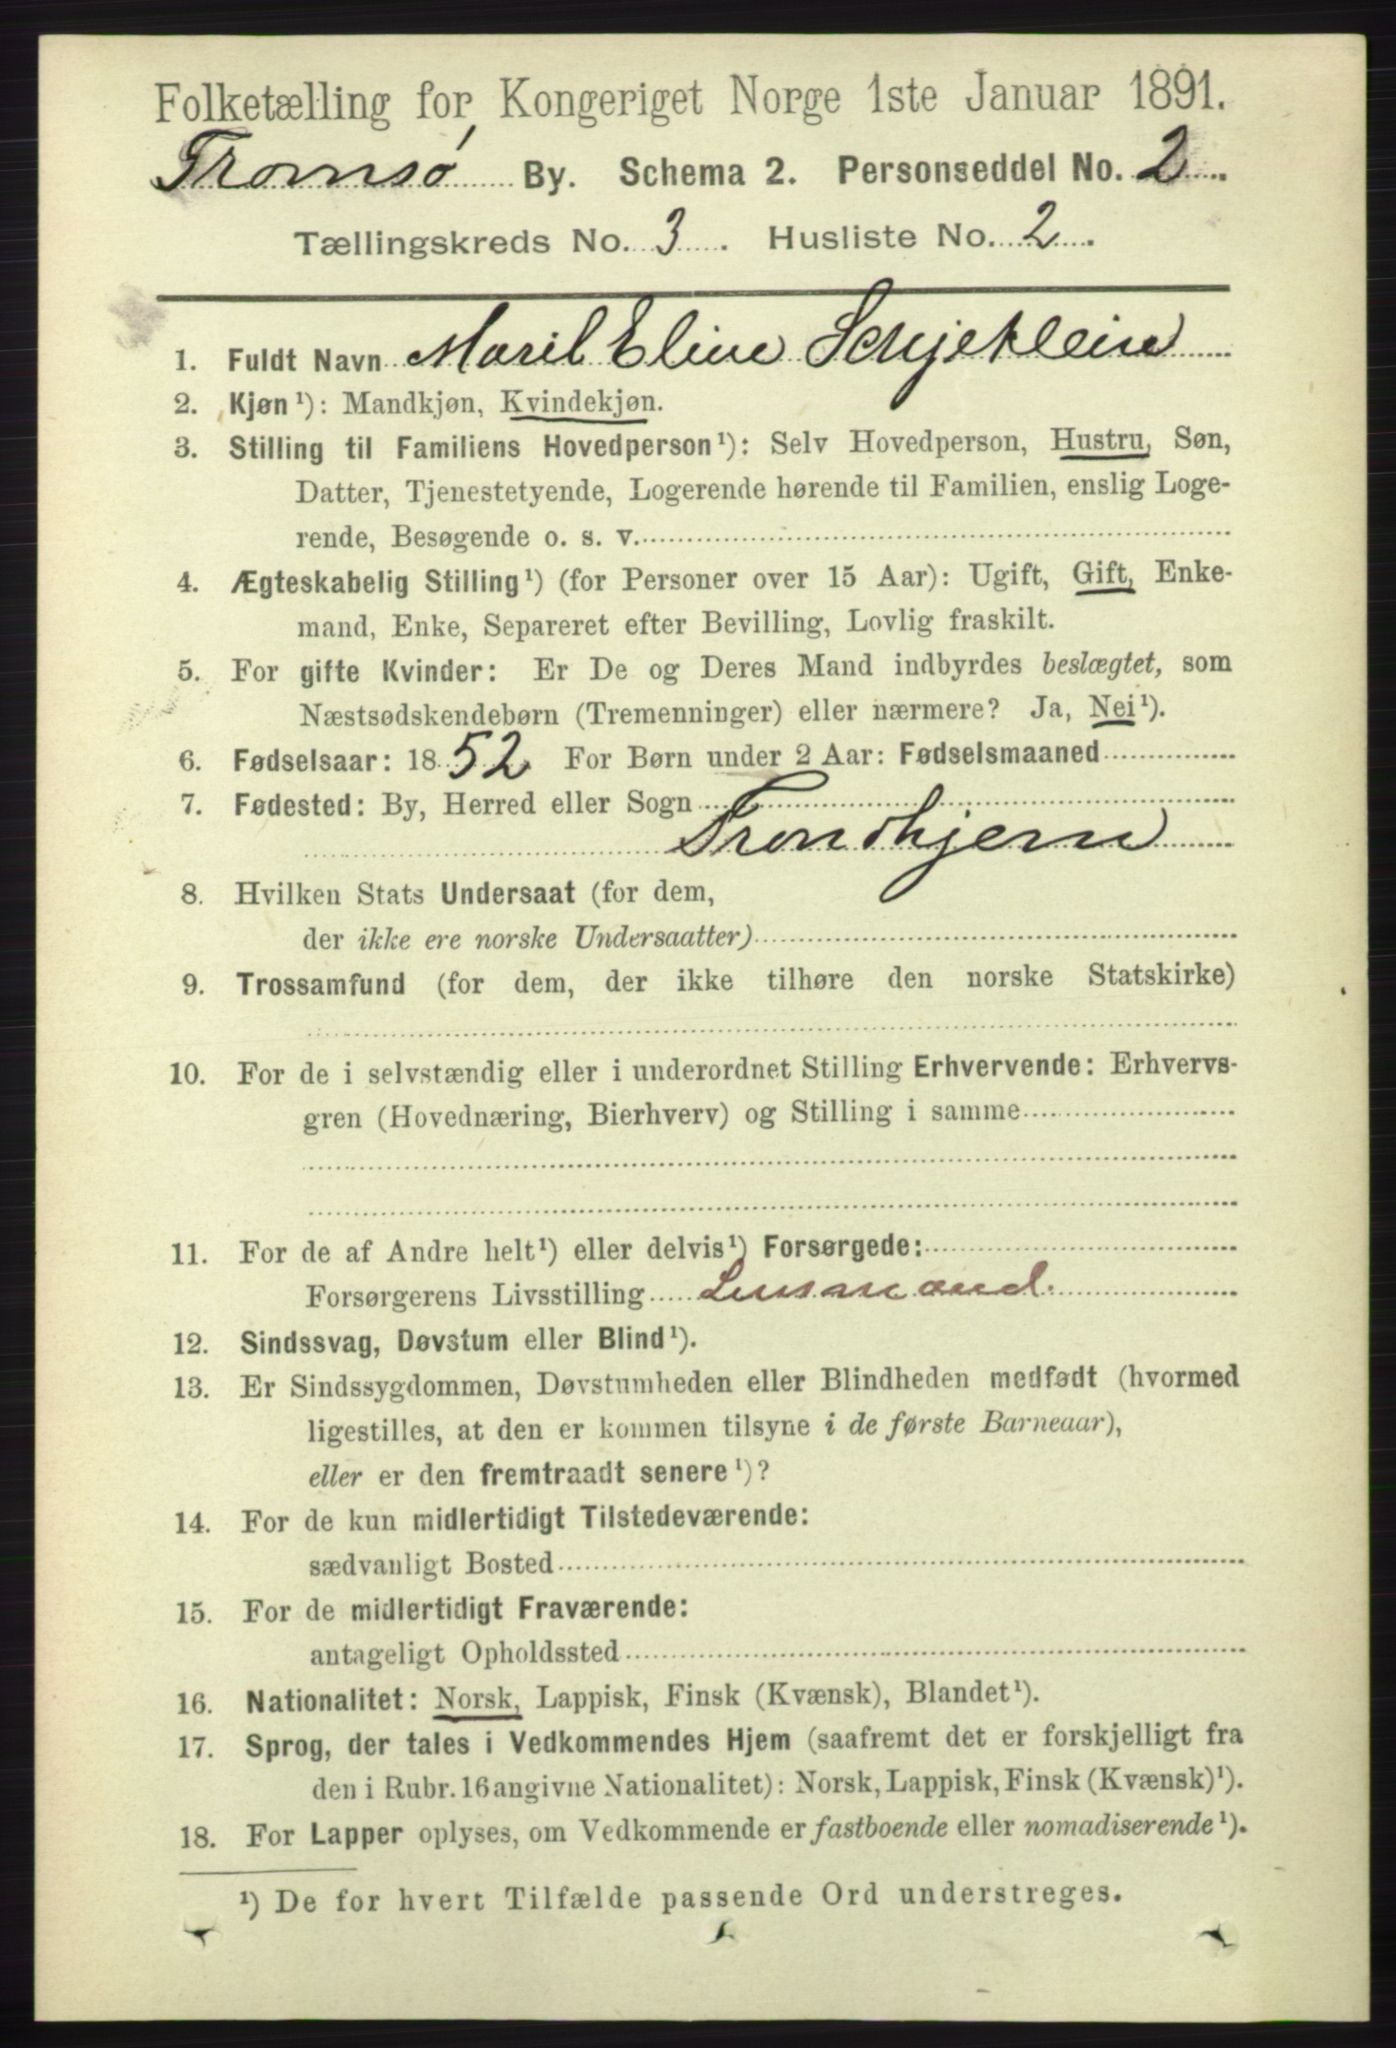 Folketælling for Kongeriget Norge 1ste Januar 1891.
Tromsø By. Schema 2. Personseddel No. 2.
Tællingskreds No. 3. Husliste No. 2.
1. Fuldt Navn Maril Eline Schjeklein
2. Kjøn ¹): Mandkjøn, Kvindekjøn.
3. Stilling til Familiens Hovedperson ¹): Selv Hovedperson, Hustru, Søn,
Datter, Tjenestetyende, Logerende hørende til Familien, enslig Loge-
rende, Besøgende o. s. v.
4. Ægteskabelig Stilling ¹) (for Personer over 15 Aar): Ugift, Gift, Enke-
mand, Enke, Separeret efter Bevilling, Lovlig fraskilt.
5. For gifte Kvinder: Er De og Deres Mand indbyrdes beslægtet, som
Næstsødskendebørn (Tremenninger) eller nærmere? Ja, Nei ¹).
6. Fødselsaar: 1852 For Børn under 2 Aar: Fødselsmaaned
7. Fødested: By, Herred eller Sogn
Trondhjem
8. Hvilken Stats Undersaat (for dem,
der ikke ere norske Undersaatter)
9. Trossamfund (for dem, der ikke tilhøre den norske Statskirke)
10. For de i selvstændig eller i underordnet Stilling Erhvervende: Erhvervs-
gren (Hovednæring, Bierhverv) og Stilling i samme
11. For de af Andre helt ¹) eller delvis ¹) Forsørgede:
Forsørgerens Livsstilling Lensmand.
12. Sindssvag, Døvstum eller Blind ¹).
13. Er Sindssygdommen, Døvstumheden eller Blindheden medfødt (hvormed
ligestilles, at den er kommen tilsyne i de første Barneaar),
eller er den fremtraadt senere ¹)?
14. For de kun midlertidigt Tilstedeværende:
sædvanligt Bosted
15. For de midlertidigt Fraværende:
antageligt Opholdssted
16. Nationalitet: Norsk, Lappisk, Finsk (Kvænsk), Blandet ¹).
17. Sprog, der tales i Vedkommendes Hjem (saafremt det er forskjelligt fra
den i Rubr. 16 angivne Nationalitet): Norsk, Lappisk, Finsk (Kvænsk) ¹).
18. For Lapper oplyses, om Vedkommende er fastboende eller nomadiserende ¹).
¹) De for hvert Tilfælde passende Ord understreges.